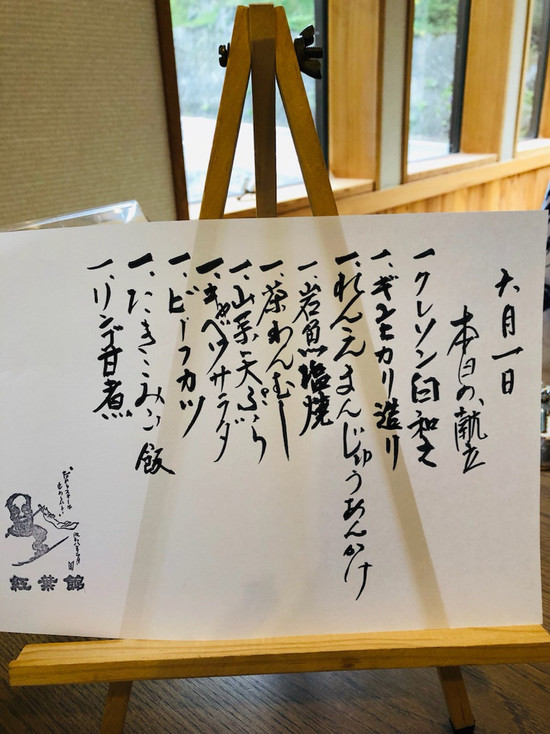 六月一日
本日の献立
一、クレソン白和え
一、ギンヒカリ造り
一、れんこんまんじゅうあんかけ
一、岩魚塩焼
一、茶わんむし
一、山菜天ぷら
一、キャベツサラダ
一、ビーフカツ
一、たきこみご飯
一、リンゴ甘煮
紅葉館